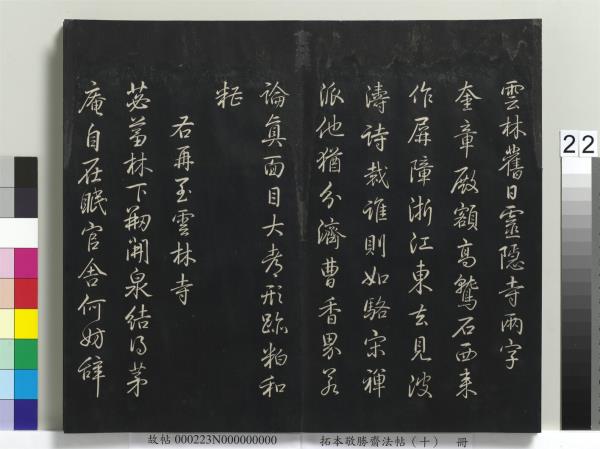 雲林舊日靈隱寺兩字
奎章殿額高鷲石西来
作屏障浙江東去見波
濤詩裁誰則如駱宋禪
派他猶分濟曹香界若
論真面目大都形跡粕和
糟
右再至雲林寺
苾蒭林下剏開泉結得茅
庵自在眠官舍何妨辭
22
故帖 000223N000000000
拓本敬勝齋法帖（十） 冊